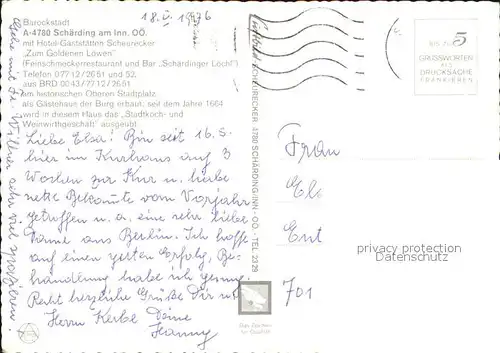 18.V.1976
Barockstadt
A-4780 Schärding am Inn, OÖ.
mit Hotel-Gaststätten Scheurecker
„Zum Goldenen Löwen"
(Feinschmeckerrestaurant und Bar „Schärdinger Loch")
Telefon 07712/2651 und 52,
aus BRD 0043/7712/2651
am historischen Oberen Stadtplatz
als Gästehaus der Burg erbaut, seit dem Jahre 1664
wird in diesem Haus das „Stadtkoch- und
Weinwirthgeschäft" ausgeübt
Liebe Elsa! Bin seit 16. 5.
hier im Kurhaus auf 3
Wochen zur Kur u. habe
nette Bekannte vom Vorjahr
getroffen u. a. eine sehr liebe
Dame aus Berlin. Ich hoffe
auf einen guten Erfolg, Be-
handlung habe ich genug.
Recht herzliche Grüße Dir u.
Herrn Kerbe Deine
Hanny
SCHEURECKER 4780 SCHÄRDING/INN - OÖ. - TEL. 2329
BIS ZU 5
GRUSSWORTEN
ALS
DRUCKSACHE
FRANKIEREN
Frau
701
privacy protection
Datenschutz